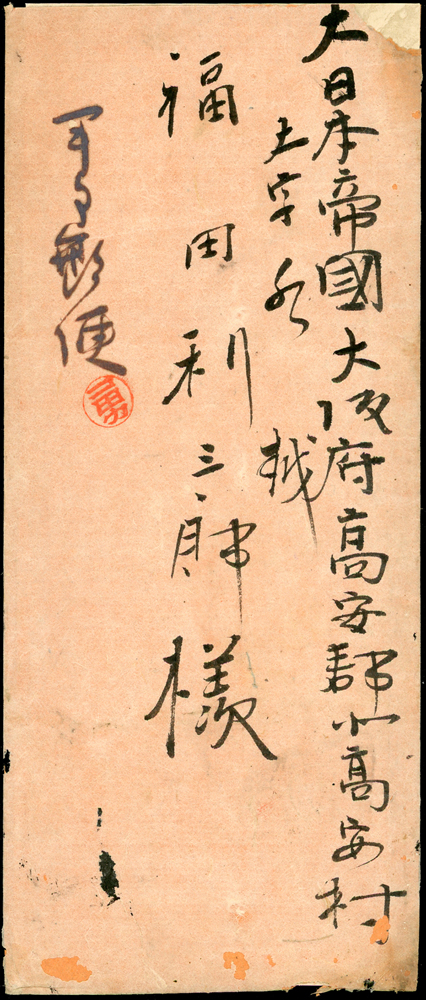 大日本帝國大阪府高安郡北高安村
大字水越
福田利三郎様
軍事郵便